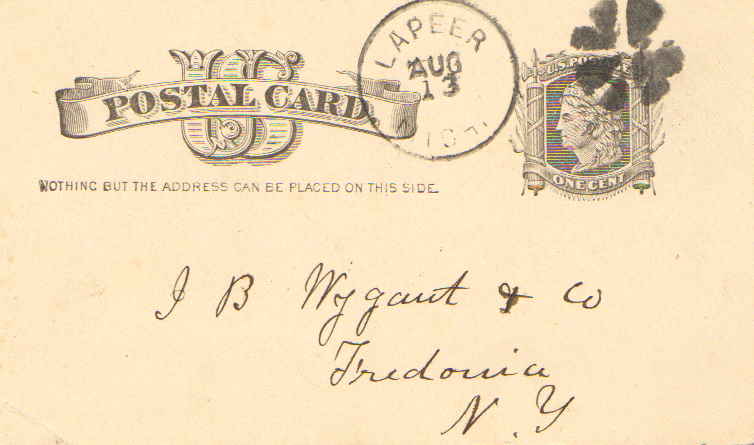 US
POSTAL CARD
NOTHING BUT THE ADDRESS CAN BE PLACED ON THIS SIDE.
LAPEER
AUG
13
MICH.
U.S. POSTAGE
ONE CENT
J B Wygant & Co
Fredonia
N. Y